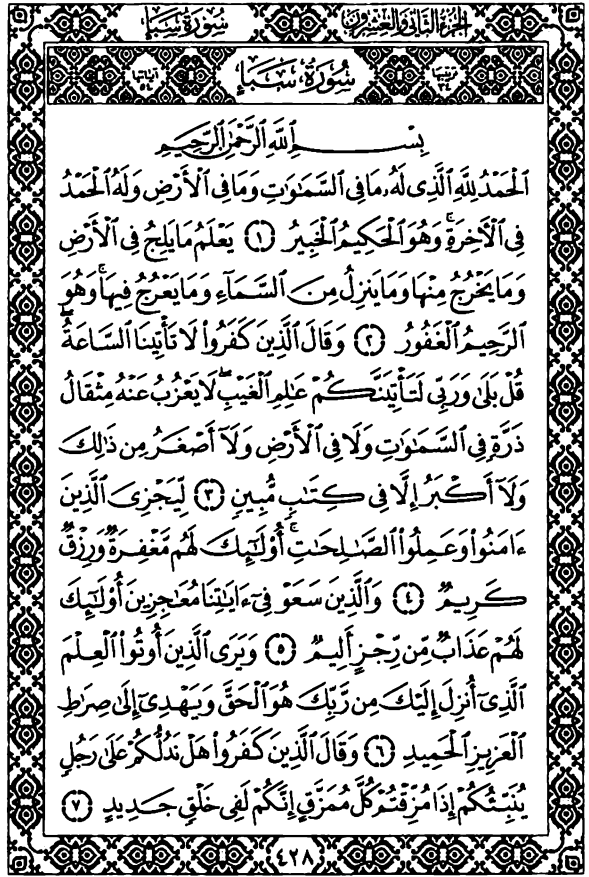 الجزء الثاني والعشرون سورة سبإ
ترتيبها ٣٤ سورة سبإ آياتها ٥٤
بِسْمِ اللَّهِ الرَّحْمَٰنِ الرَّحِيمِ
الْحَمْدُ لِلَّهِ الَّذِى لَهُۥ مَا فِى السَّمَٰوَٰتِ وَمَا فِى الْأَرْضِ وَلَهُ الْحَمْدُ
فِى الْأَخِرَةِ ۚ وَهُوَ الْحَكِيمُ الْخَبِيرُ ١ يَعْلَمُ مَا يَلِجُ فِى الْأَرْضِ
وَمَا يَخْرُجُ مِنْهَا وَمَا يَنزِلُ مِنَ السَّمَآءِ وَمَا يَعْرُجُ فِيهَا ۚ وَهُوَ
الرَّحِيمُ الْغَفُورُ ٢ وَقَالَ الَّذِينَ كَفَرُوا۟ لَا تَأْتِينَا السَّاعَةُ ۖ
قُلْ بَلَىٰ وَرَبِّى لَتَأْتِيَنَّكُمْ عَٰلِمِ الْغَيْبِ ۖ لَا يَعْزُبُ عَنْهُ مِثْقَالُ
ذَرَّةٍ فِى السَّمَٰوَٰتِ وَلَا فِى الْأَرْضِ وَلَآ أَصْغَرُ مِن ذَٰلِكَ
وَلَآ أَكْبَرُ إِلَّا فِى كِتَٰبٍ مُّبِينٍ ٣ لِّيَجْزِىَ الَّذِينَ
ءَامَنُوا۟ وَعَمِلُوا۟ الصَّٰلِحَٰتِ ۚ أُو۟لَٰٓئِكَ لَهُم مَّغْفِرَةٌ وَرِزْقٌ
كَرِيمٌ ٤ وَالَّذِينَ سَعَوْ فِىٓ ءَايَٰتِنَا مُعَٰجِزِينَ أُو۟لَٰٓئِكَ
لَهُمْ عَذَابٌ مِّن رِّجْزٍ أَلِيمٌ ٥ وَيَرَى الَّذِينَ أُوتُوا۟ الْعِلْمَ
الَّذِىٓ أُنزِلَ إِلَيْكَ مِن رَّبِّكَ هُوَ الْحَقَّ وَيَهْدِىٓ إِلَىٰ صِرَٰطِ
الْعَزِيزِ الْحَمِيدِ ٦ وَقَالَ الَّذِينَ كَفَرُوا۟ هَلْ نَدُلُّكُمْ عَلَىٰ رَجُلٍ
يُنَبِّئُكُمْ إِذَا مُزِّقْتُمْ كُلَّ مُمَزَّقٍ إِنَّكُمْ لَفِى خَلْقٍ جَدِيدٍ ٧
٤٢٨